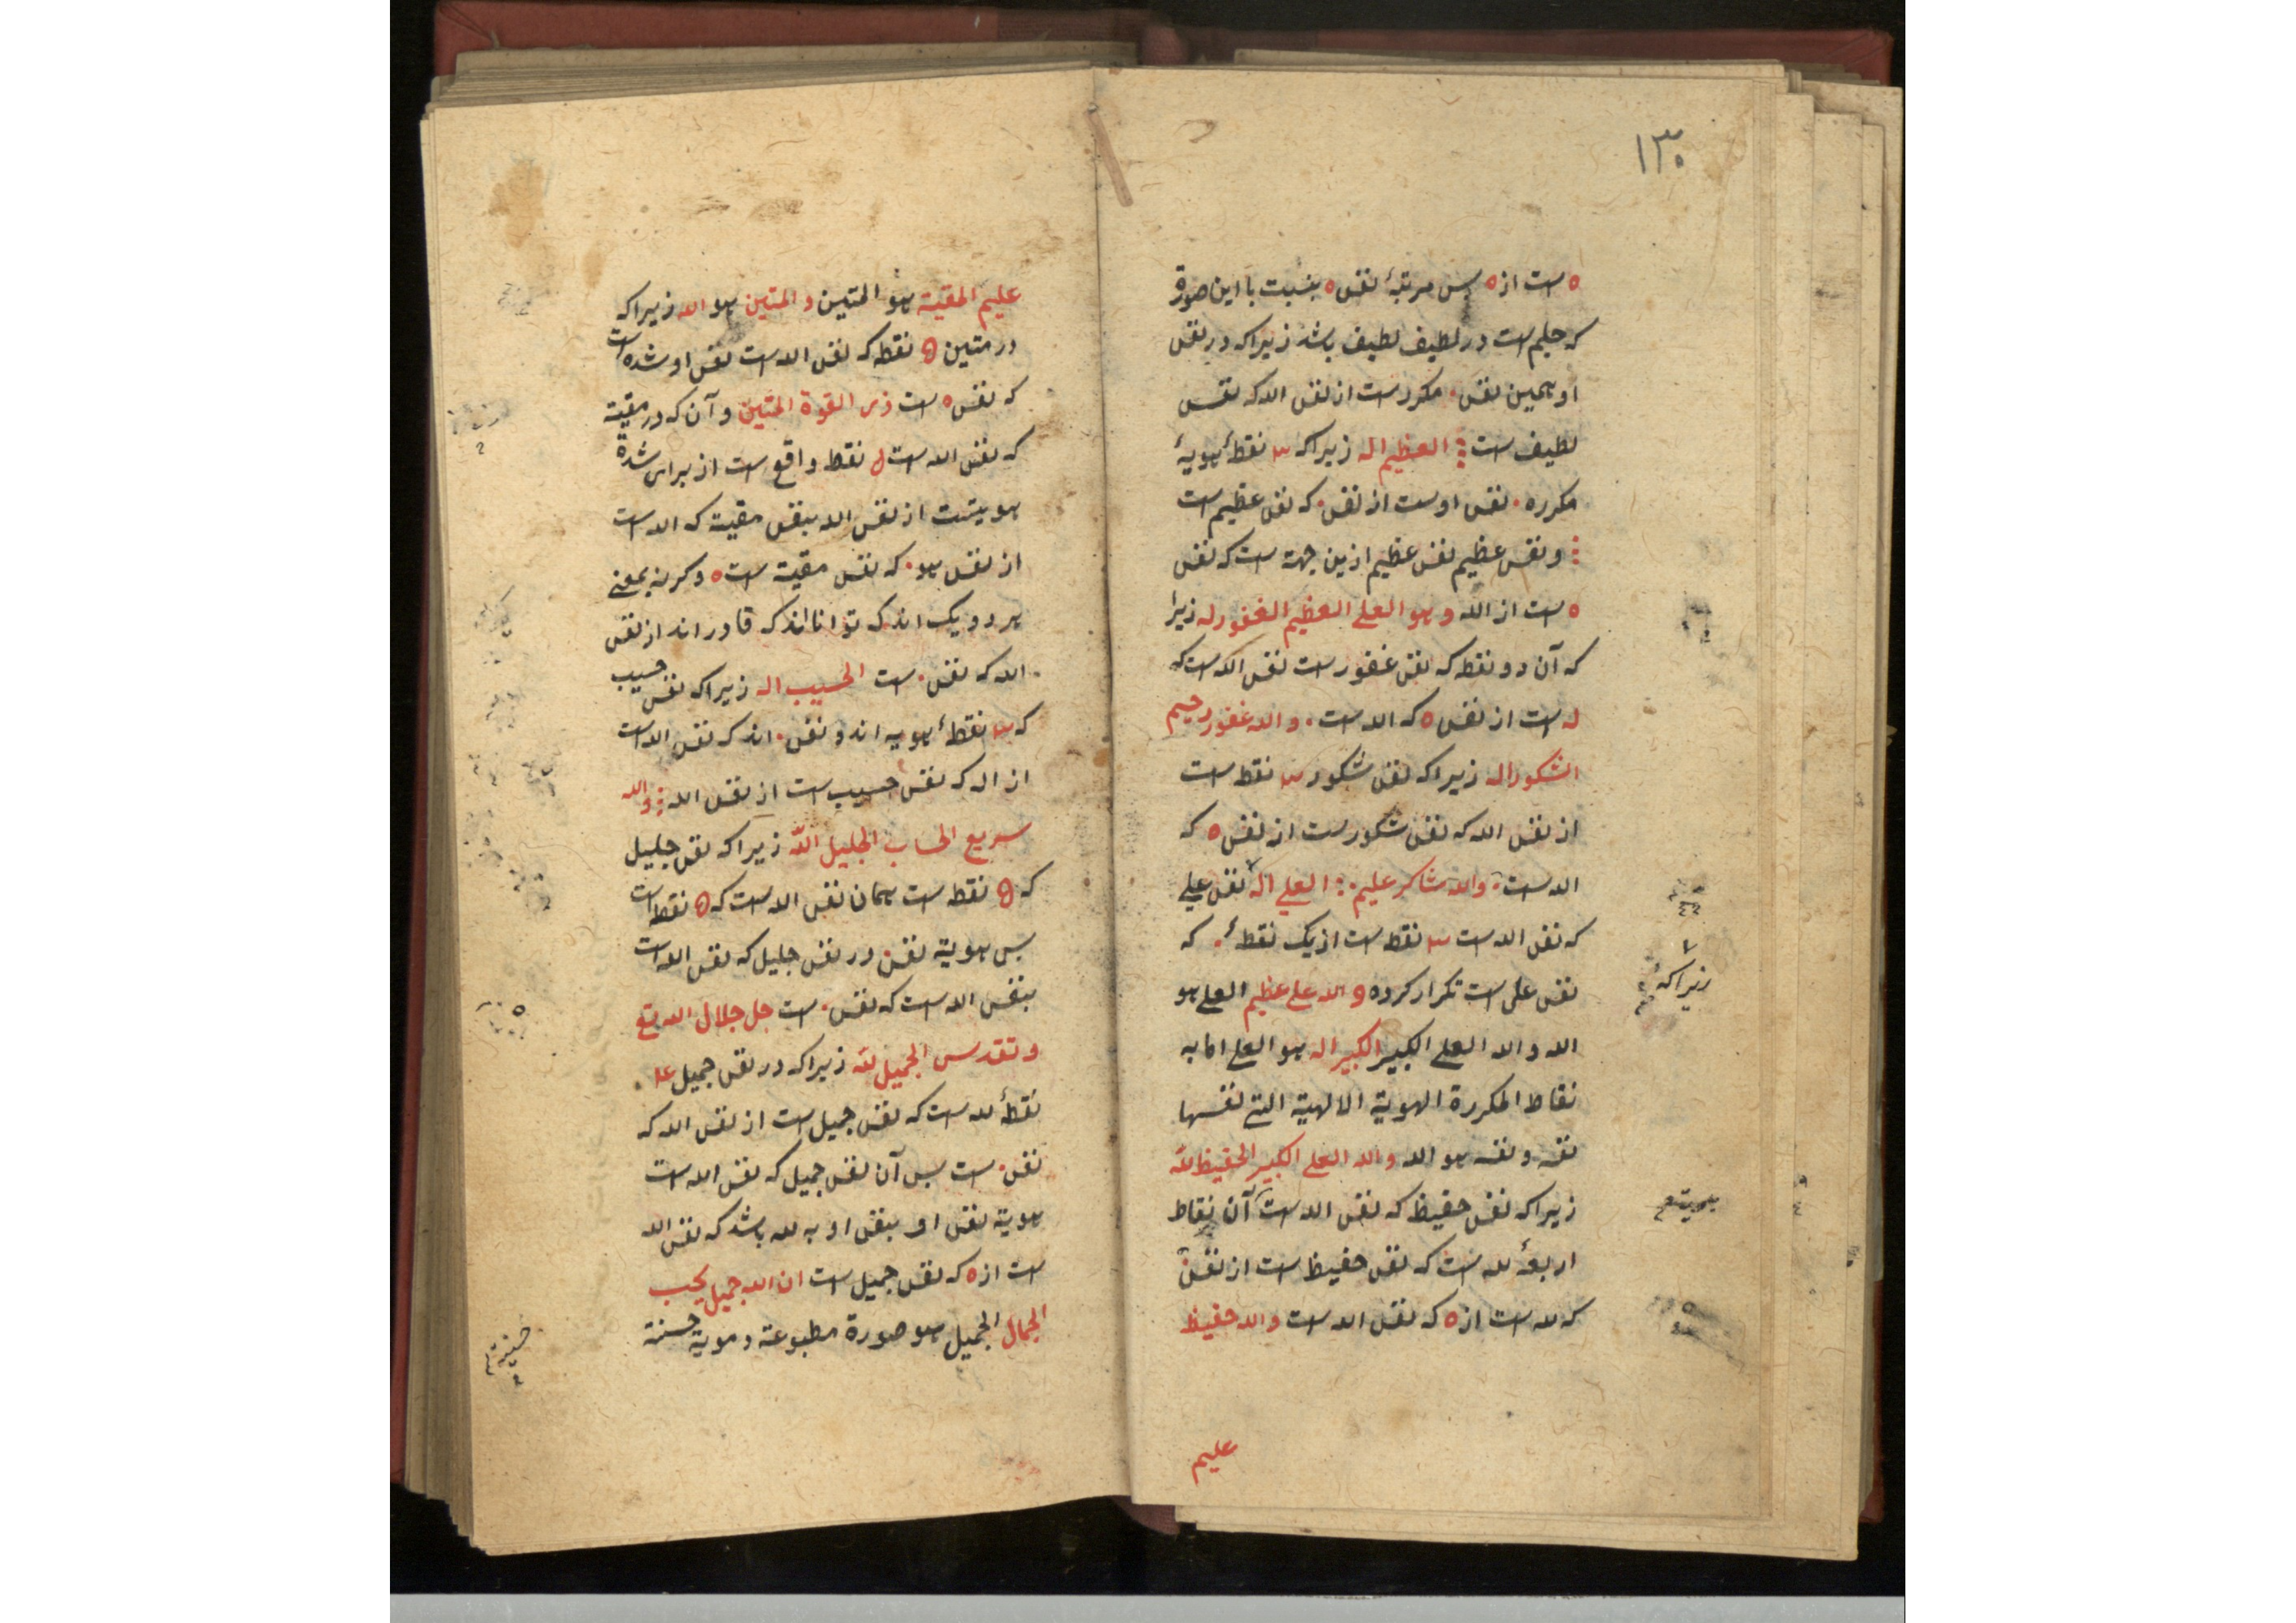 ١٣٠
ه است از ه پس مرتبهٔ نفس ه بنسبت با این صورة
که حلیم است در لطیف لطیف باشد زیرا که در نفس
او همین نفس . مکررست از نفس الله که نفس
لطیف ست العظیم اله زیرا که ٣ نقطهٔ هویهٔ
مکرره . نفس اوست از نفس . که نفس عظیم است
و نفس عظیم نفس عظیم ازین جهت ست که نفس
ه است از الله و هو العلی العظیم الغفور له زیرا
که آن دو نقطه که نفس غفورست نفس الله ست که
له است از نفس ه که الله ست . والله غفور رحیم
الشکور اله زیرا که نفس شکور ٣ نقطه ست
از نفس الله که نفس شکورست از نفس ه که
الله ست . والله شاکر علیم العلی اله نفس علی
زیرا که
که نفس الله ست ٣ نقطه ست از یک نقطهٔ . که
نفس علی ست تکرار کرده و الله علی عظیم العلی هو
الله والله العلی الکبیر الکبیر اله هو العلی
نقاط المکررة الهویة الالهیة التی نفسها
نفسه و نفسه هو الله والله العلی الکبیر الحفیظ لله
زیرا که نفس حفیظ که نفس الله ست آن نقاط
اربعهٔ لله ست که نفس حفیظ ست از نفس
که لله ست از ه که نفس الله ست والله حفیظ
علیم
علیم المقیت هو المتین و المتین هو الله زیرا که
در متین ۵ نقطه که نفس الله ست نفس او شده است
که نفس ه ست ذی القوة المتین و آن که در مقیت
که نفس الله ست نقطه واقع ست از برای شدة
هویتست از نفس الله بنفس مقیت که الله ست
از نفس هو . که نفس مقیت ست ه و کرنه بمعنی
هر دو یک اند که توانااند که قادر اند از نفس
الله که نفس . ست الحسیب اله زیرا که نفس حسیب
که ٣ نقطهٔ هویه اند و نفس . اند که نفس الله ست
از اله که نفس حسیب ست از نفس الله والله
سریع الحساب الجلیل الله زیرا که نفس جلیل
که ۵ نقطه ست همان نفس الله ست که ۵ نقطه است
پس هویة نفس در نفس جلیل که نفس الله ست
بنفس الله ست که نفس . ست جل جلال الله تع
و تقدس الجمیل لله زیرا که در نفس جمیل ۴
نقطهٔ لله ست که نفس جمیل ست از نفس الله که
نفس . ست پس آن نفس جمیل که نفس الله ست
هویة نفس او بنفس او به لله باشد که نفس الله
ست از ه که نفس جمیل ست ان الله جمیل یحب
الجمال الجمیل هو صورة مطبوعة و هویة حسنة